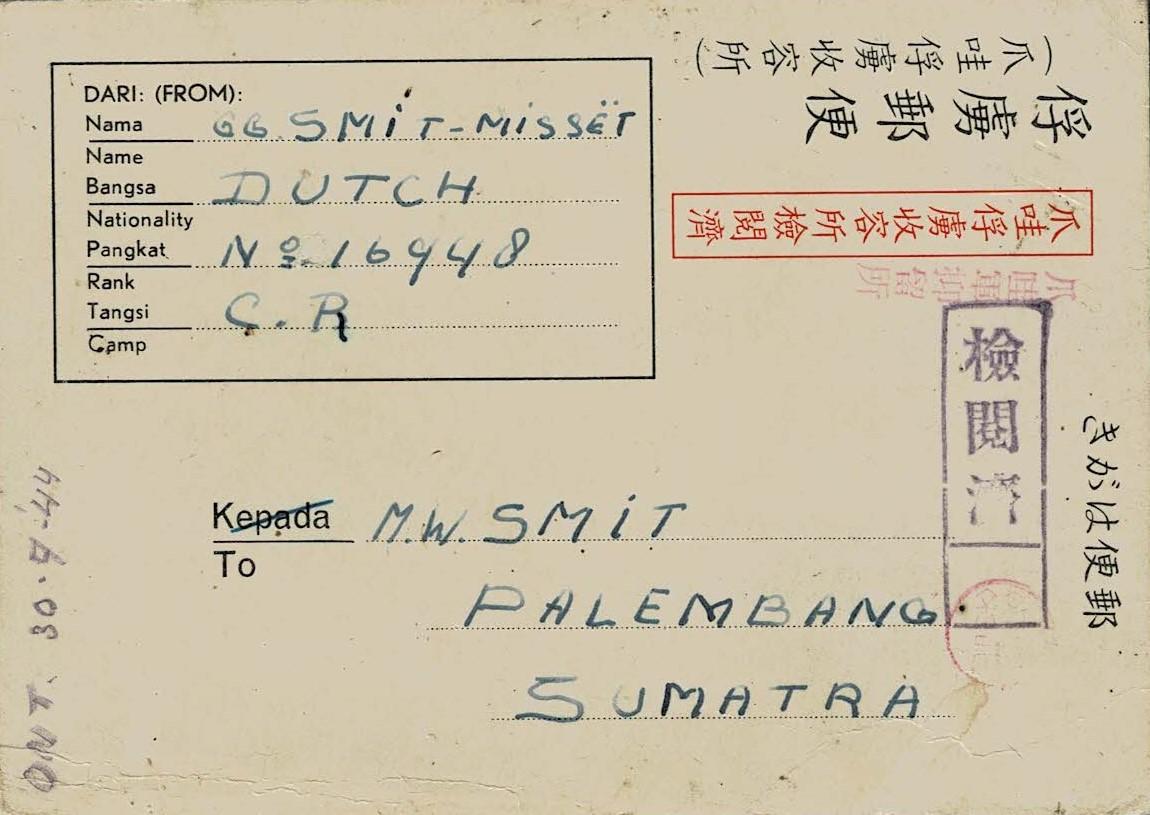 (爪哇俘虜收容所)
俘虜郵便
爪哇俘虜收容所檢閱濟
爪哇軍抑留所
檢閱濟
きがは便郵
DARI: (FROM):
Nama GB. SMIT-MISSËT
Name
Bangsa DUTCH
Nationality
Pangkat No. 16948
Rank
Tangsi C. R
Camp
Kepada M.W. SMIT
To
PALEMBANG
SUMATRA
ONT. 30-9-44